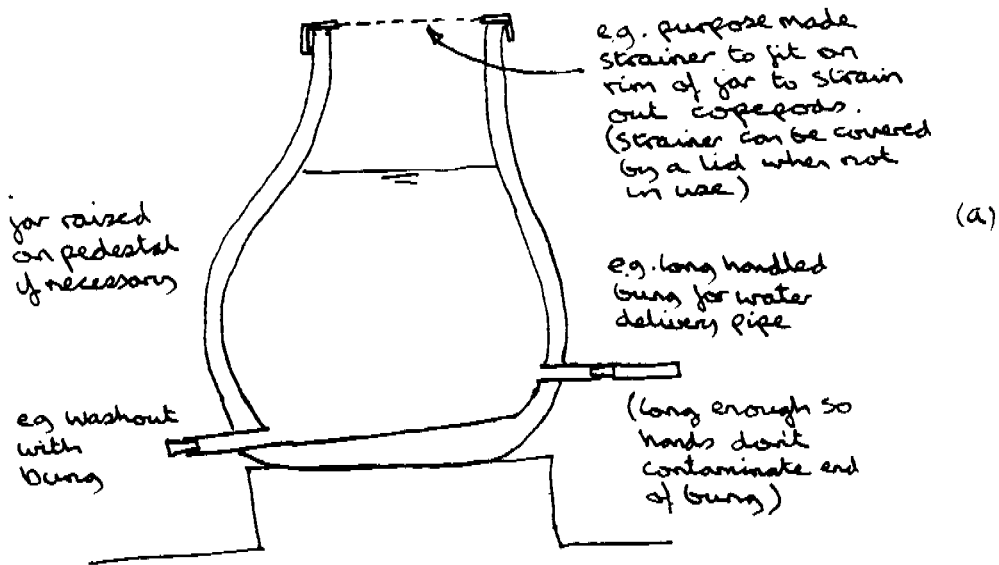 e.g. purpose made
strainer to fit on
rim of jar to strain
out copepods.
(strainer can be covered
by a lid when not
in use)
(a)
jar raised
on pedestal
if necessary
e.g. long handled
bung for water
delivery pipe
(long enough so
hands don't
contaminate end
of bung)
eg washout
with
bung